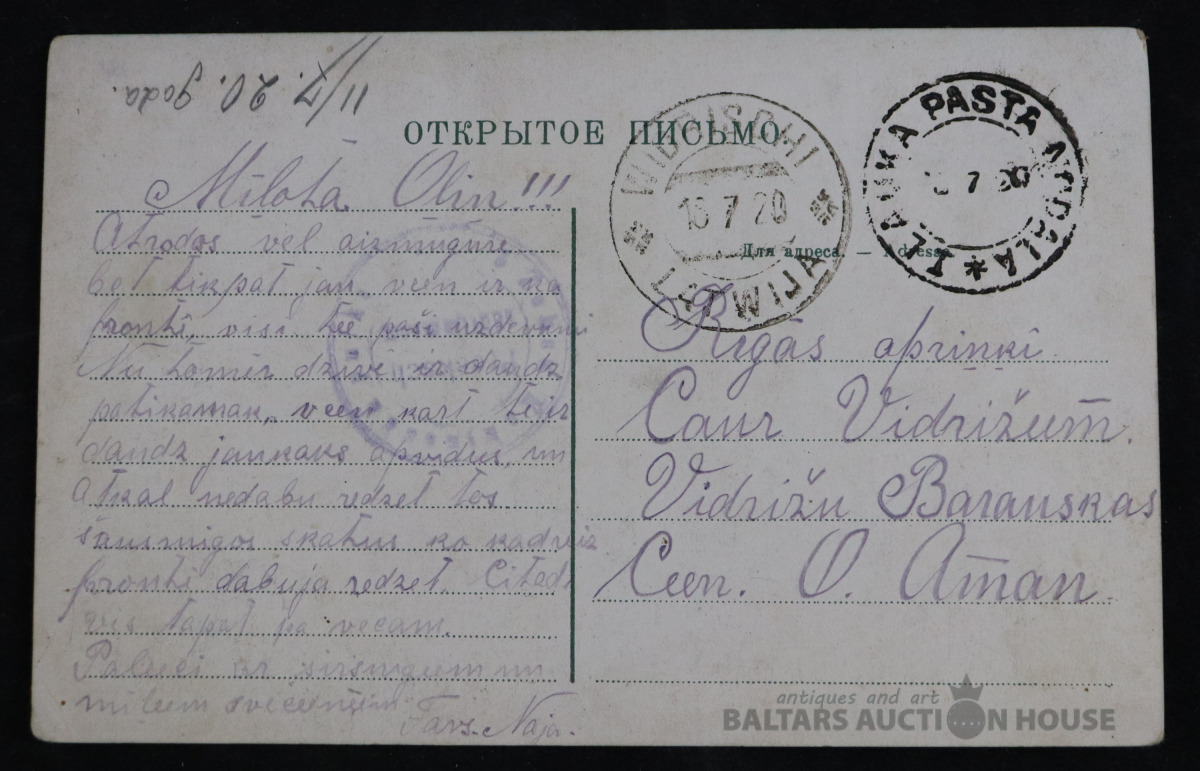 11/7. 20. goda.
ОТКРЫТОЕ ПИСЬМО.
WIDRISCHI
LATWIJA
16 7 20
ILAUKA PASTA NODALA
7 20
Для адреса. — Adresse
Mīlotā Olin!!!
Atrodos vēl aizmugurē
bet tikpat jau veen ir kā
frontē, visi tee paši uzdevumi
Nu tomēr dzīve ir daudz
patikamak, veen kārt te ir
daudz jaukaks apvidus, un
atkal nedabu redzet tos
šausmigos skatus ko kadreiz
frontē dabuja redzet. Citadi
vis tapat pa vecam.
Paleeci ar sirsnigeem un
mileem sveceeneem
Tavs. Naja.
Rīgas apriņķī.
Caur Vidrižum.
Vidrižu Barauskas
Ceen. O. Aman
antiques and art
BALTARS AUCTION HOUSE